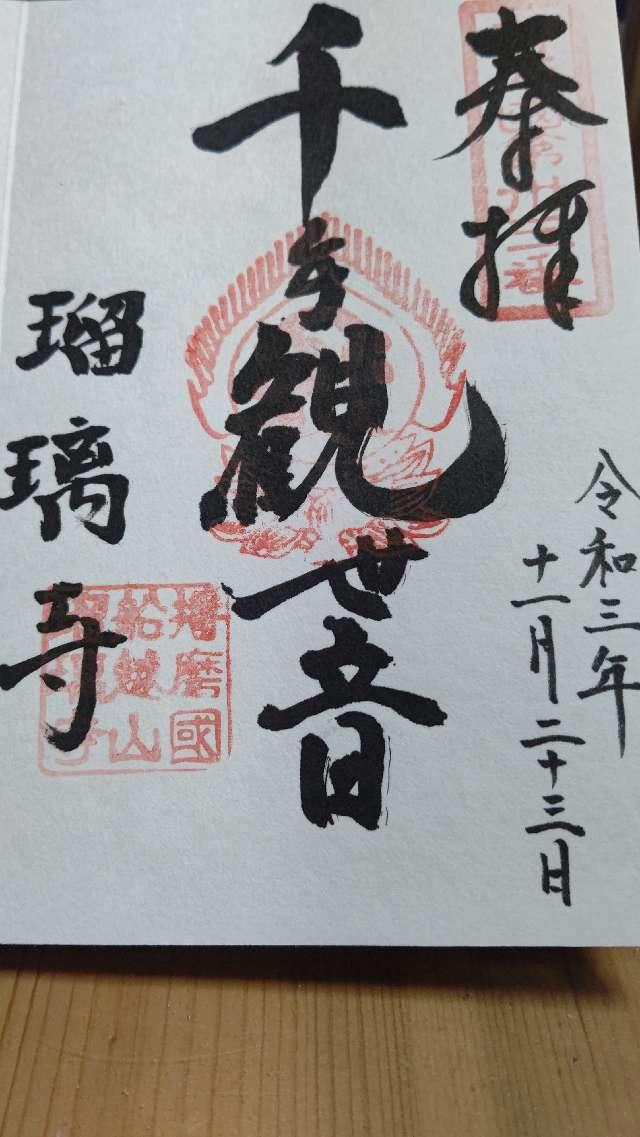 奉拝
令和三年
十一月二十三日
千手観世音
瑠璃寺
播磨國
船越山
瑠璃寺